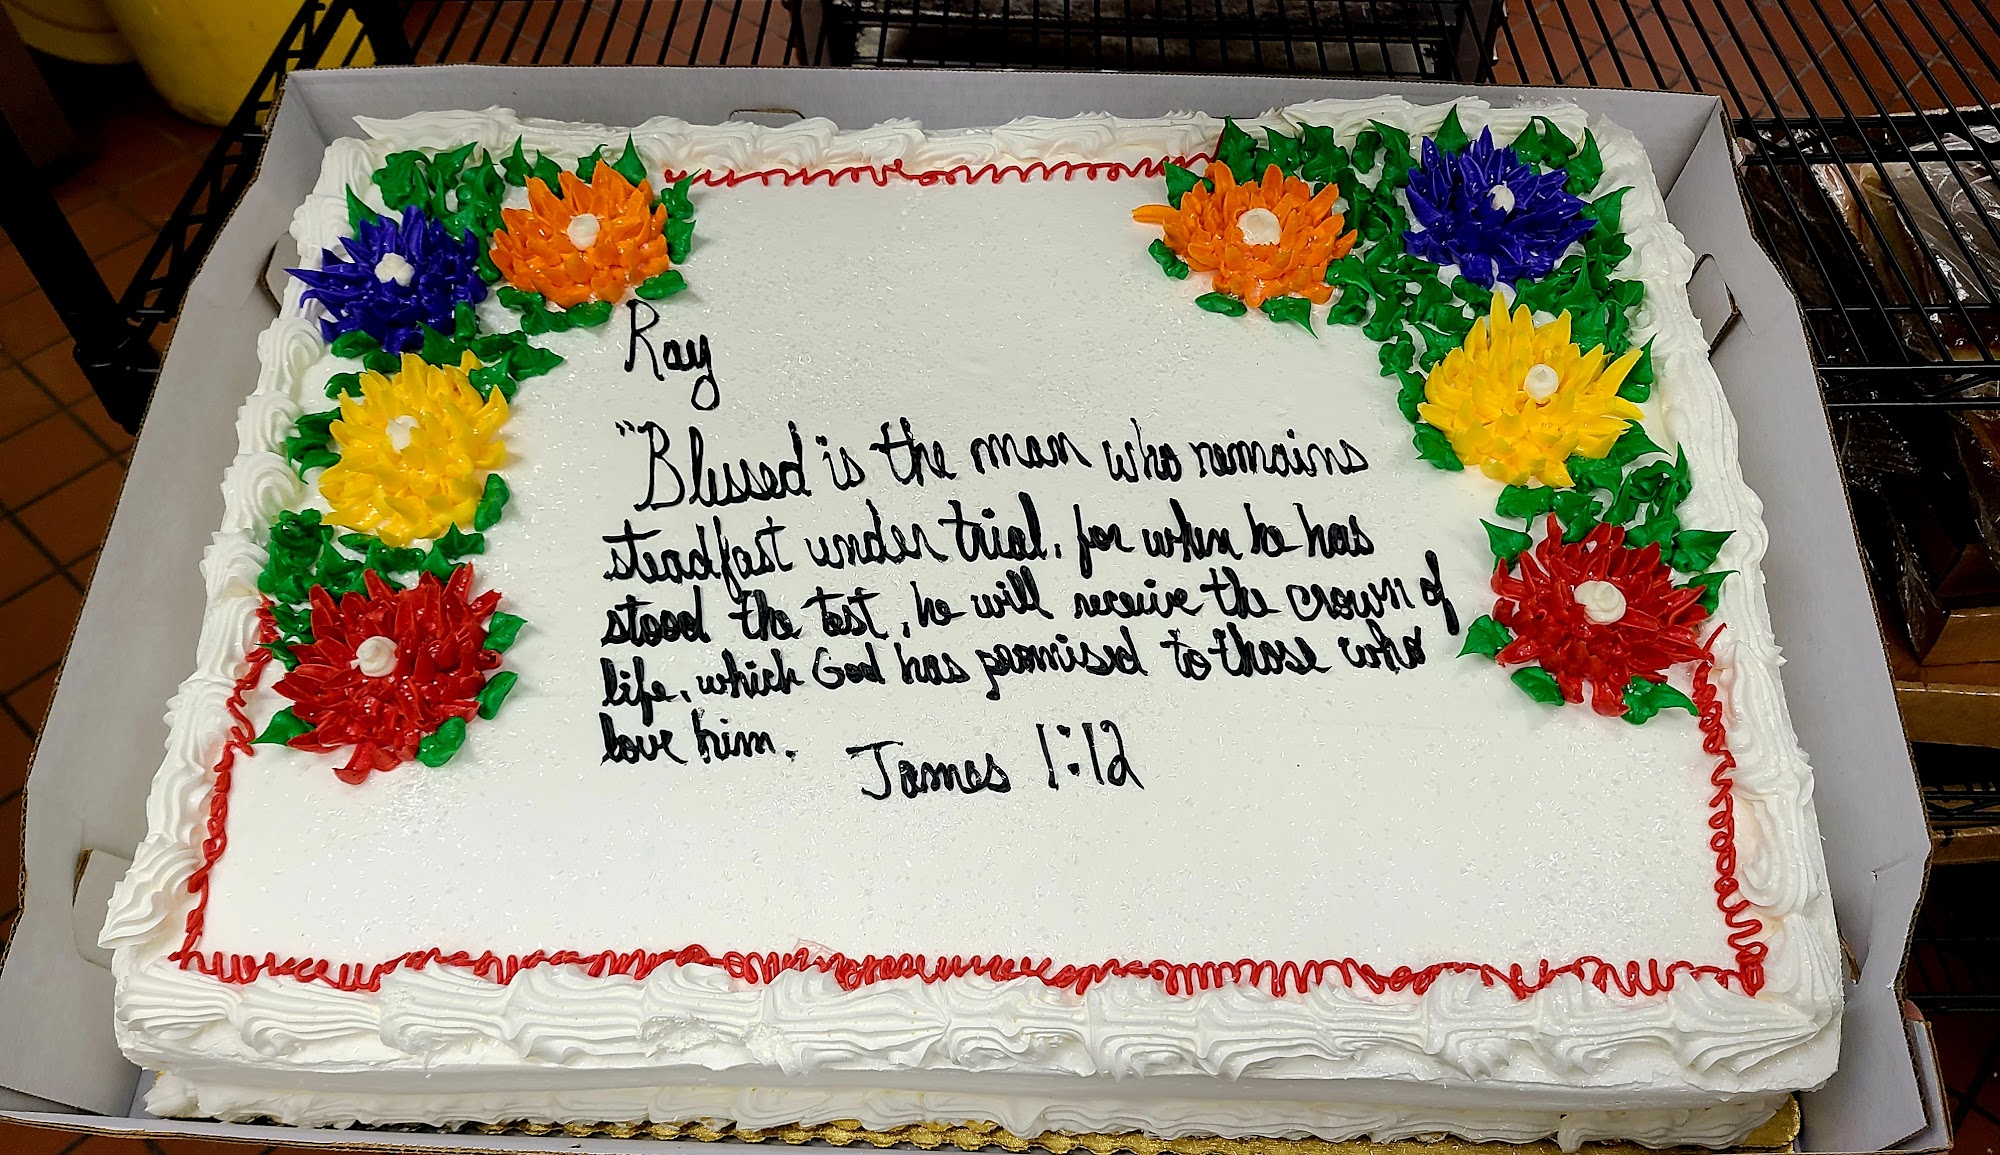 Ray
"Blessed is the man who remains
steadfast under trial, for when he has
stood the test, he will receive the crown of
life, which God has promised to those who
love him.
James 1:12